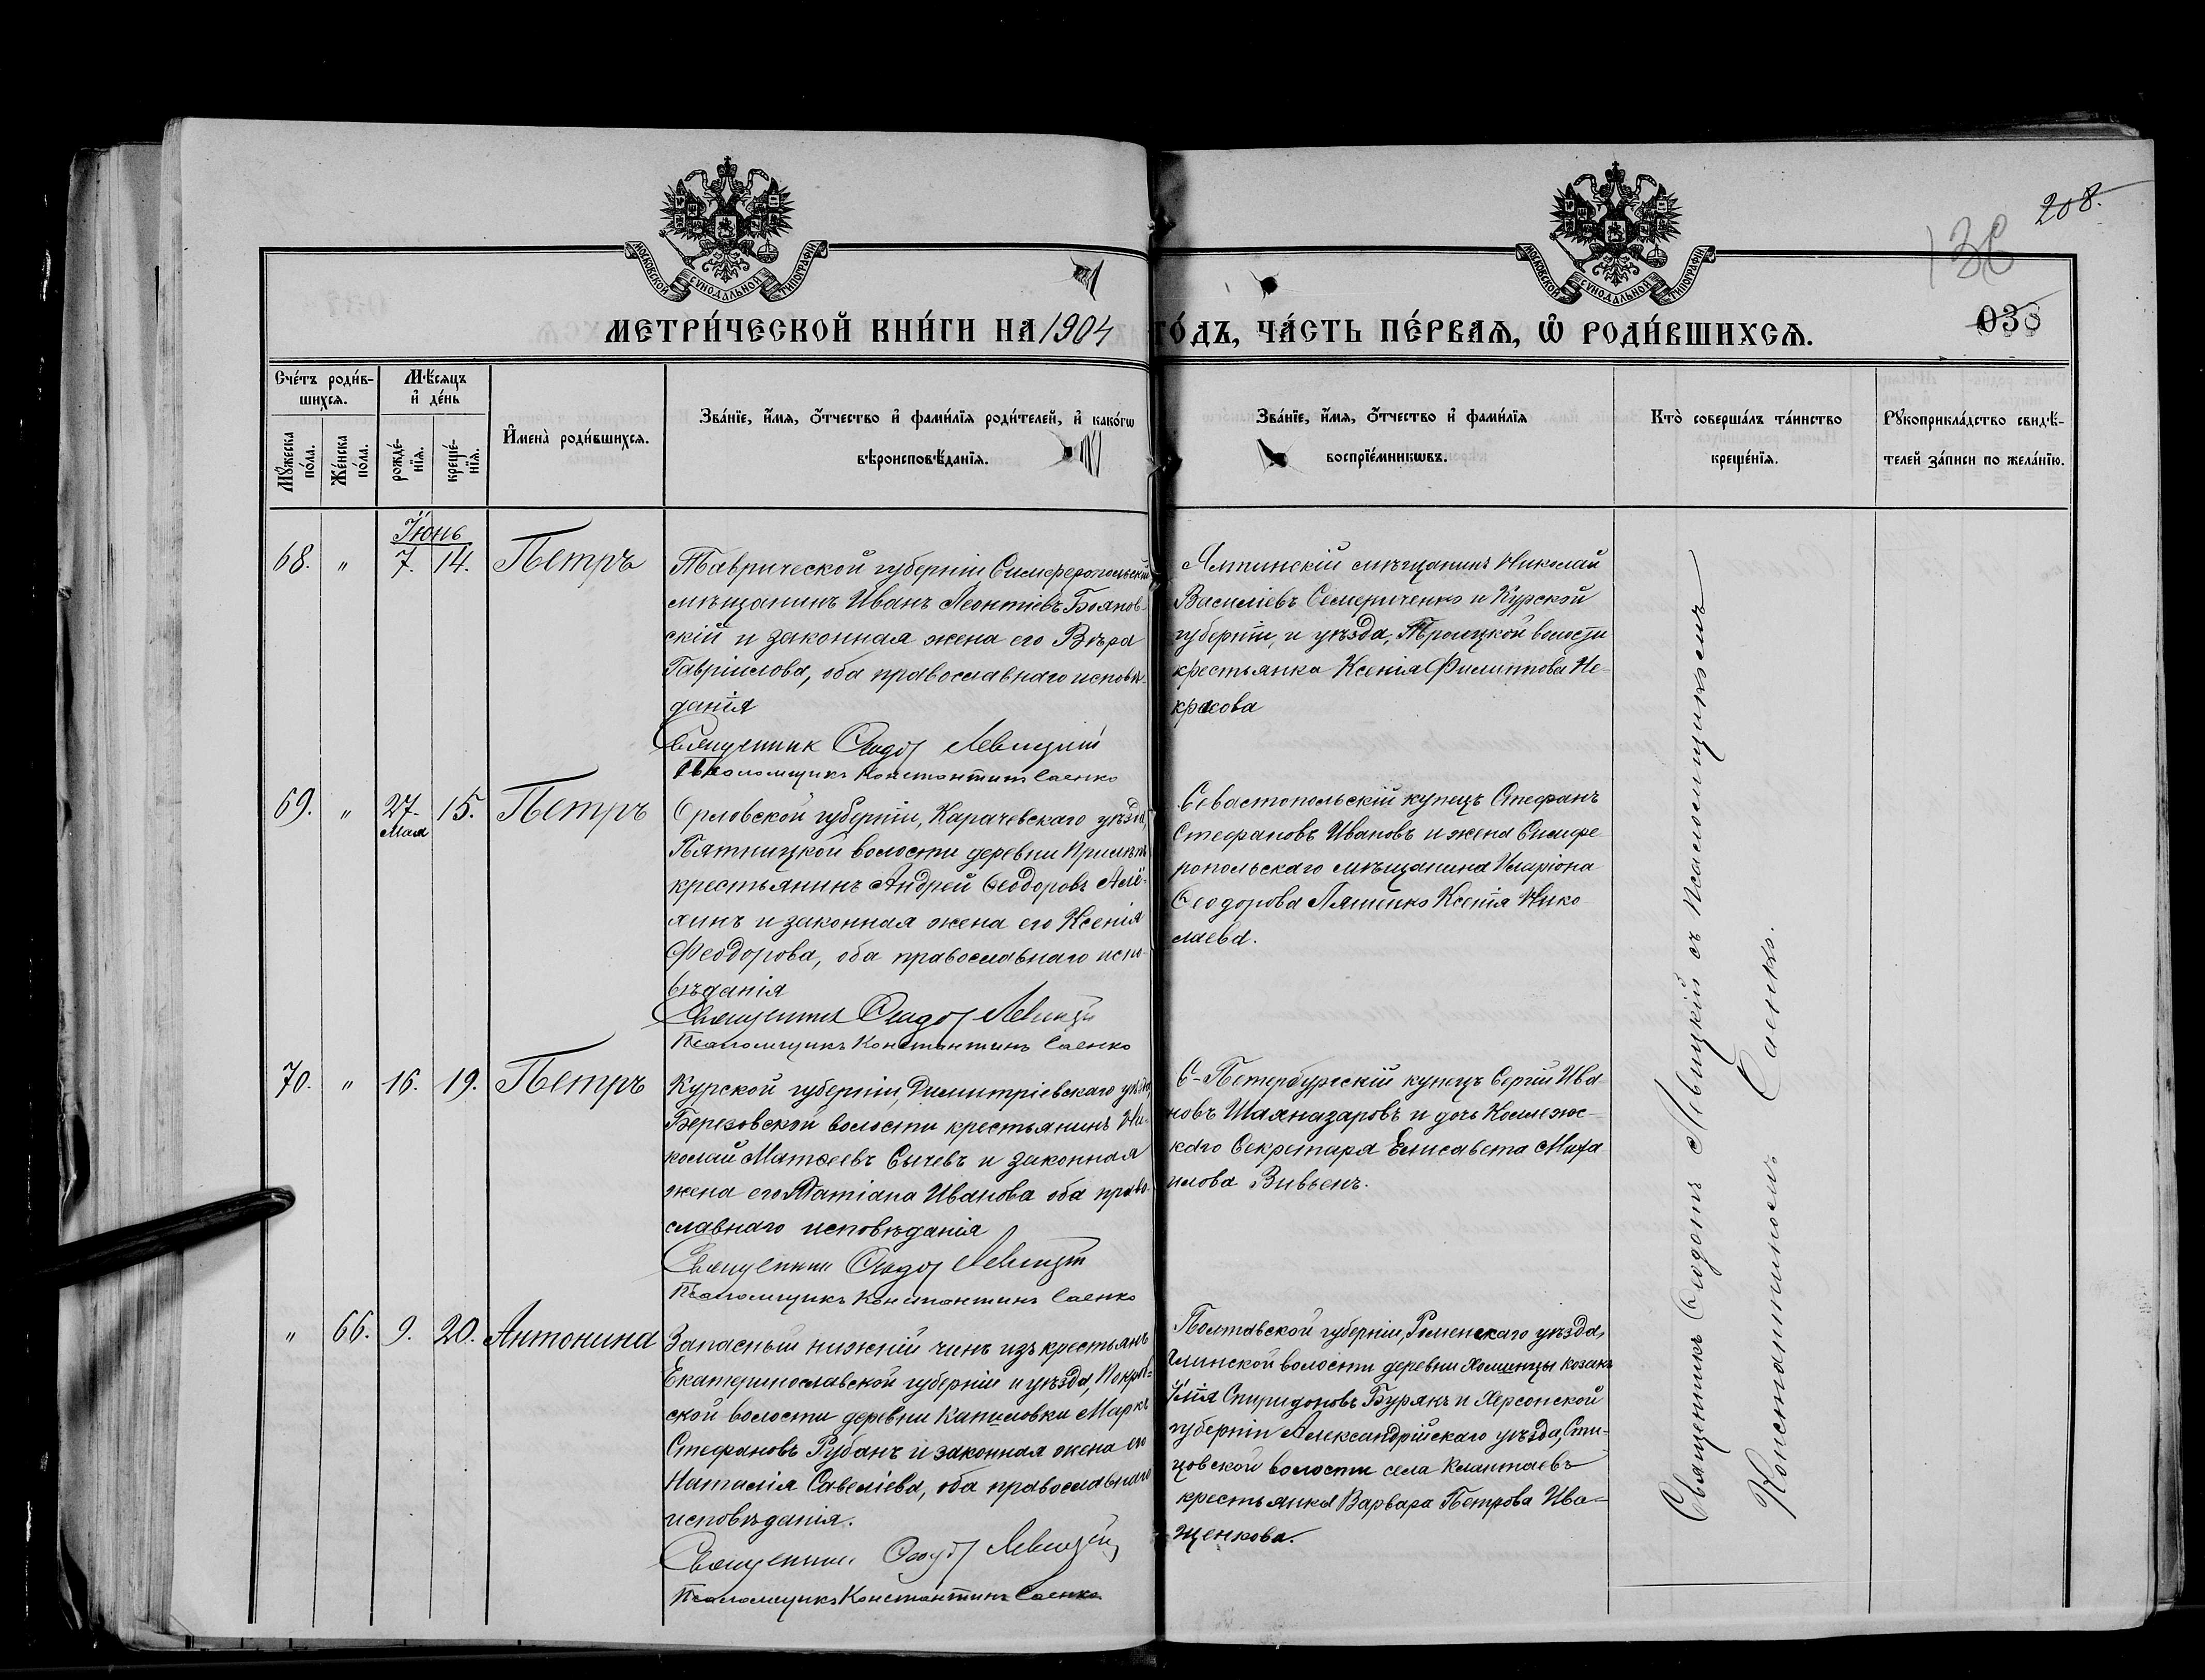 208.
138
038
МОСКОВСКОЙ СУНОДАЛЬНОЙ ТИПОГРАФІИ
МОСКОВСКОЙ СУНОДАЛЬНОЙ ТИПОГРАФІИ
МЕТРИ́ЧЕСКОЙ КНИ́ГИ НА 1904 ГО́ДЪ, ЧА́СТЬ ПЕ́РВАЯ, Ѡ҆ РОДИ́ВШИХСЯ.
Сче́тъ роди́в-
шихся.
Мѣ́сяцъ
и҆ де́нь
Мꙋ́жеска
по́ла.
Же́нска
по́ла.
рожде́-
нїя.
креще́-
нїя.
И҆мена̀ роди́вшихся.
Зва́нїе, и҆́мя, ѻ҆́тчество и҆ фами́лїя роди́телей, и҆ како́гѡ
вѣроисповѣ́данїя.
Зва́нїе, и҆́мя, ѻ҆́тчество и҆ фами́лїя
воспрїе́мникѡвъ.
Кто̀ соверша́лъ та́инство
креще́нїя.
Рꙋкоприкла́дство свидѣ́-
телей за́писи по жела́нїю.
Іюнь
68. " 7. 14. Петръ
Таврической губерніи Симферопольскій
мѣщанинъ Иванъ Леонтіевъ Боянов-
скій и законная жена его Вѣра
Гавріилова, оба православнаго исповѣ-
данія
Священник Ѳеодот Левицкий
Псаломщикъ Константин Саенко
Ялтинскій мѣщанинъ Николай
Василіевъ Семериченко и Курской
губерніи, и уѣзда, Троицкой волости
крестьянка Ксенія Филиппова Не-
красова
69. " 27. 15. Петръ
Мая
Орловской губерніи, Карачевскаго уѣзда,
Пятницкой волости деревни
крестьянинъ Андрей Ѳеодоровъ Алё-
хинъ и законная жена его Ксенія
Феодорова, оба православнаго испо-
вѣданія
Священник Ѳеодот Левицкий
Псаломщикъ Константинъ Саенко
Севастопольскій купецъ Стефанъ
Стефановъ Ивановъ и жена Симфе
ропольскаго мѣщанина Иларіона
Ѳеодорова Ляшенко Ксенія Нико
лаева.
70. " 16. 19. Петръ
Курской губерніи, Димитріевскаго уѣзда,
Березовской волости крестьянинъ Ни-
колай Матѳеевъ Сычевъ и законная
жена его Татіана Иванова оба право-
славнаго исповѣданія
Священник Ѳеодот Левицкий
Псаломщикъ Константинъ Саенко
С-Петербургскій купецъ Сергій Ива
новъ Шахназаровъ и дочь Коллежс-
каго Секретаря Елисавета Миха
илова Вивьенъ.
" 66. 9. 20. Антонина
Запасный нижній чинъ изъ крестьянъ
Екатеринославской губерніи и уѣзда, Покров-
ской волости деревни Капиловки Маркъ
Стефановъ Рубанъ и законная жена его
Наталія Савеліева, оба православнаго
исповѣданія.
Священник Ѳеодот Левицкий
Псаломщикъ Константинъ Саенко
Полтавской губерніи, Роменскаго уѣзда,
Глинской волости деревни Хоминцы козакъ
Илія Спиридоновъ Бурякъ и Херсонской
губерніи Александрійскаго уѣзда,
волости села
крестьянка Варвара Петрова Ива-
щенкова.
Священникъ Ѳеодотъ Левицкій съ псаломщикомъ
Константиномъ Саенко.